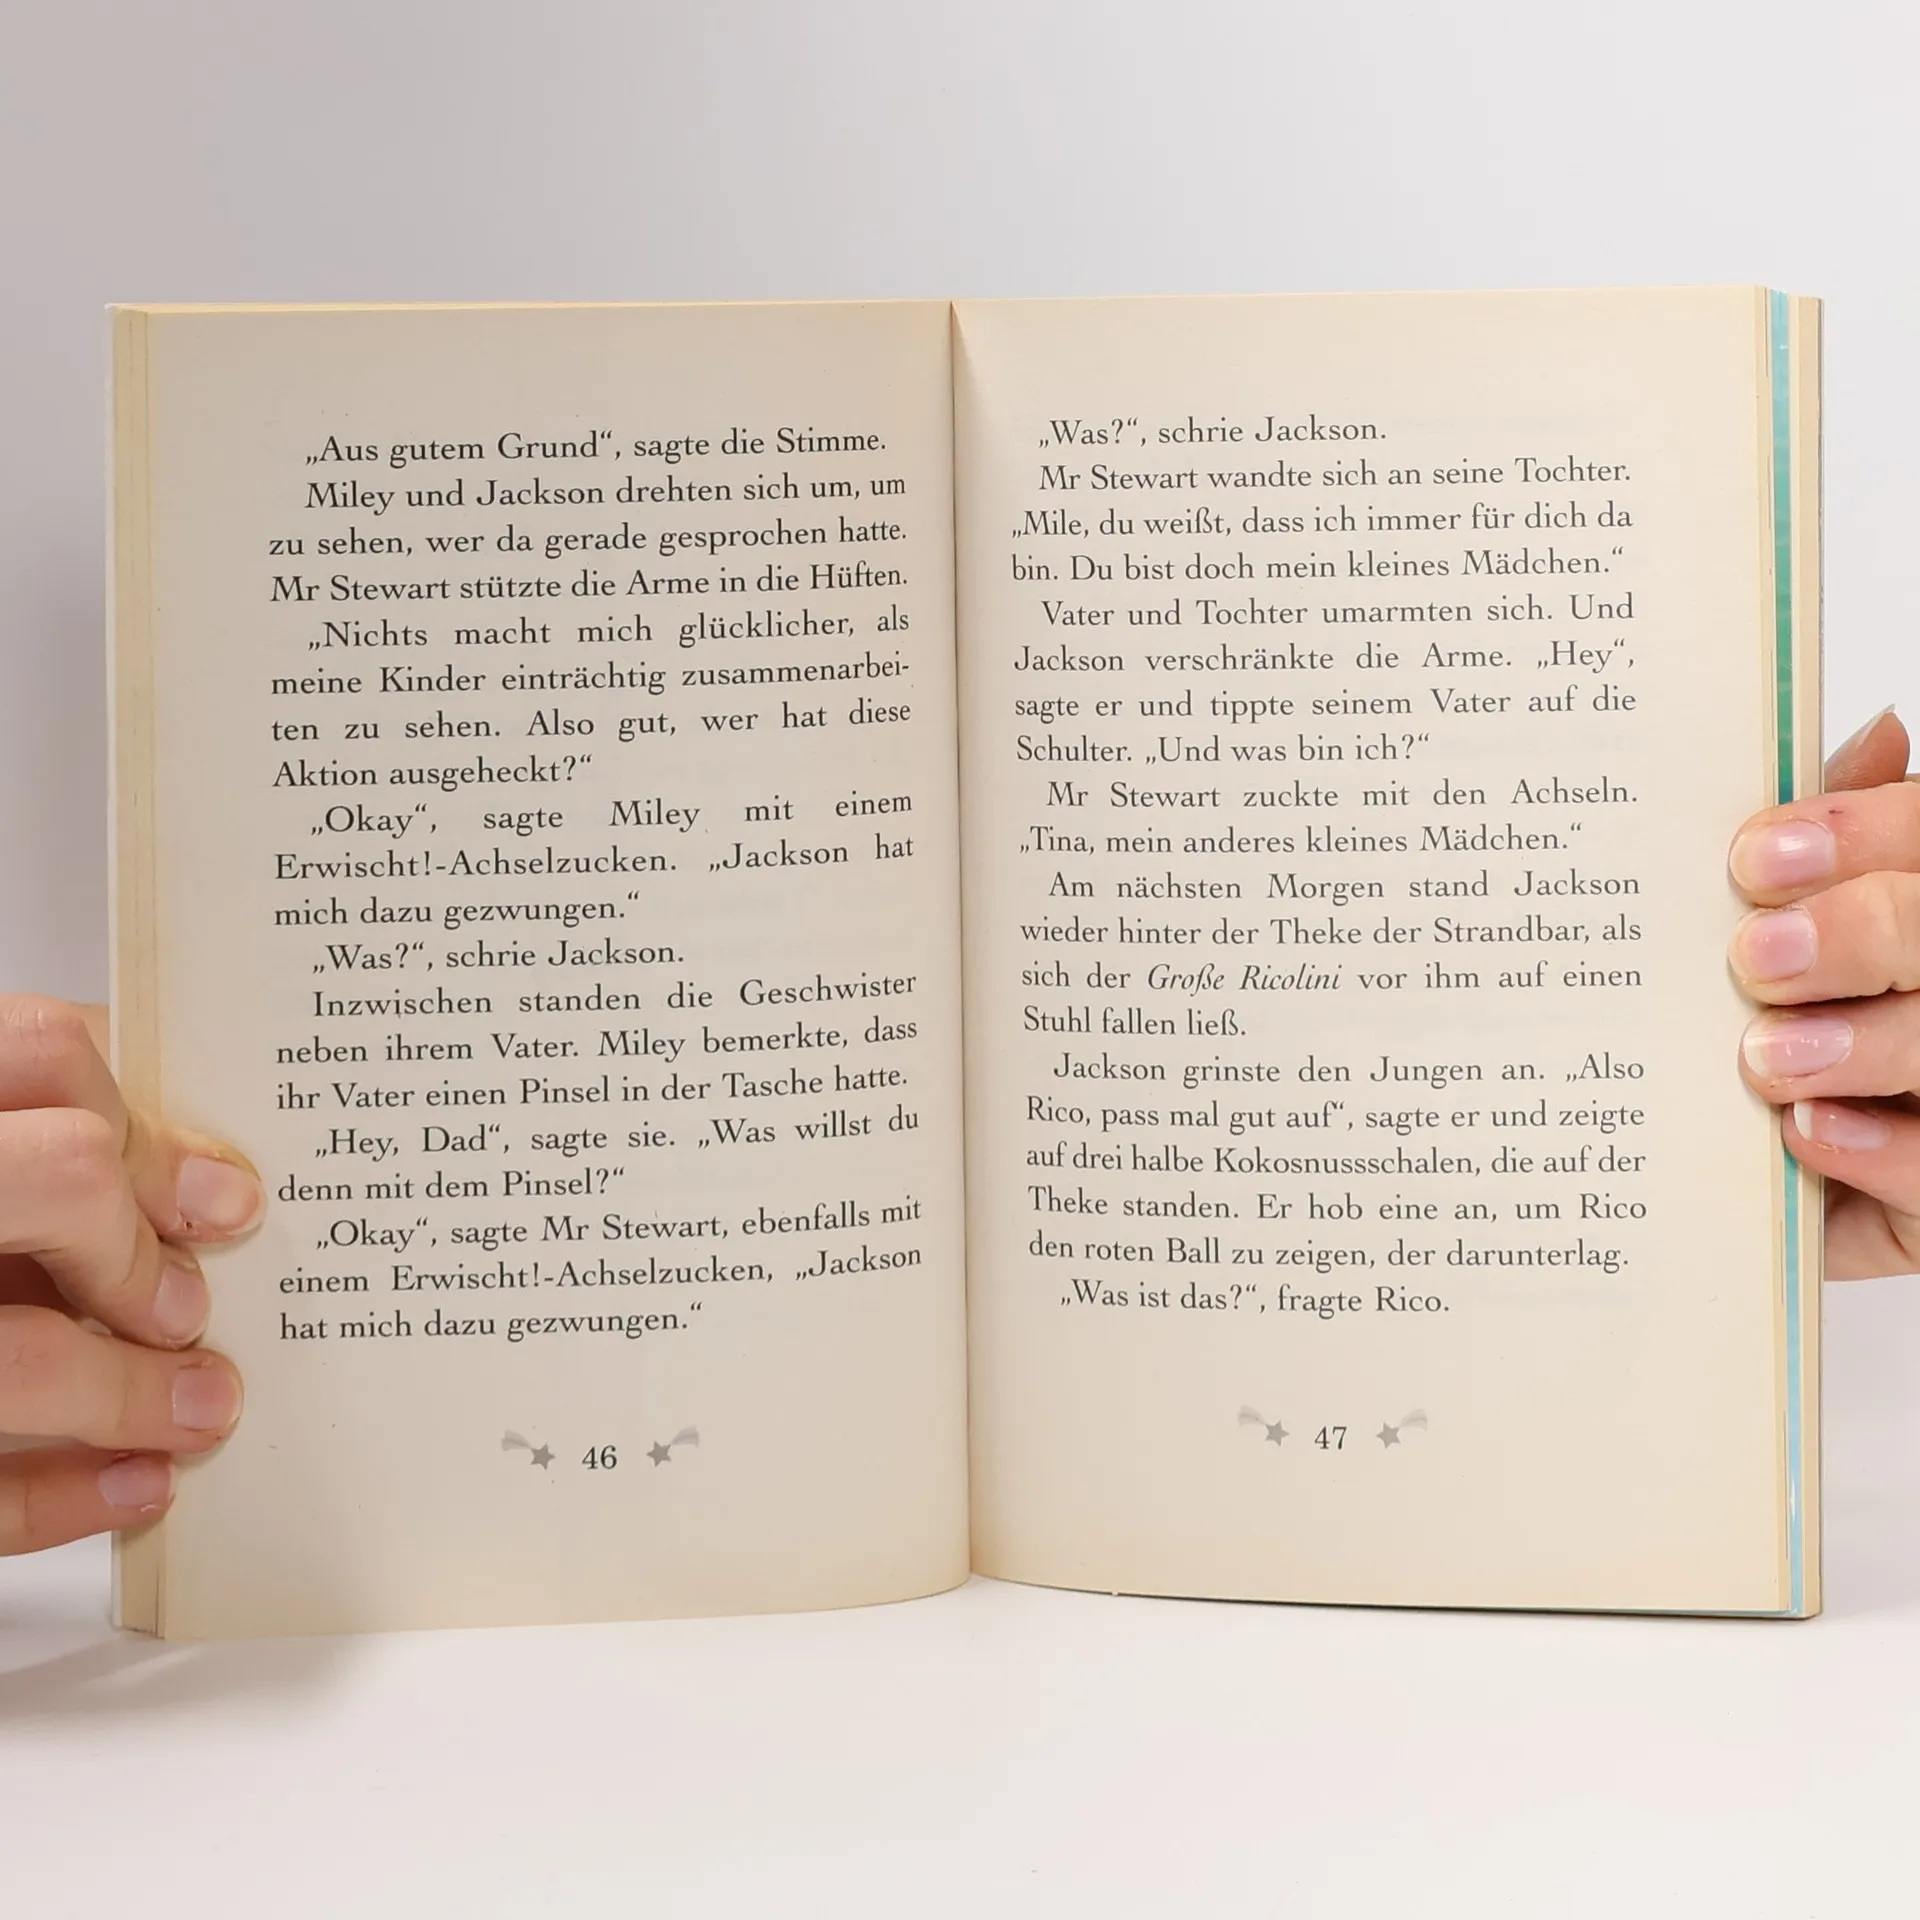 „Aus gutem Grund“, sagte die Stimme.
Miley und Jackson drehten sich um, um
zu sehen, wer da gerade gesprochen hatte.
Mr Stewart stützte die Arme in die Hüften.
„Nichts macht mich glücklicher, als
meine Kinder einträchtig zusammenarbei-
ten zu sehen. Also gut, wer hat diese
Aktion ausgeheckt?“
„Okay“, sagte Miley mit einem
Erwischt!-Achselzucken. „Jackson hat
mich dazu gezwungen.“
„Was?“, schrie Jackson.
Inzwischen standen die Geschwister
neben ihrem Vater. Miley bemerkte, dass
ihr Vater einen Pinsel in der Tasche hatte.
„Hey, Dad“, sagte sie. „Was willst du
denn mit dem Pinsel?“
„Okay“, sagte Mr Stewart, ebenfalls mit
einem Erwischt!-Achselzucken, „Jackson
hat mich dazu gezwungen.“
46
„Was?“, schrie Jackson.
Mr Stewart wandte sich an seine Tochter.
„Mile, du weißt, dass ich immer für dich da
bin. Du bist doch mein kleines Mädchen.“
Vater und Tochter umarmten sich. Und
Jackson verschränkte die Arme. „Hey“,
sagte er und tippte seinem Vater auf die
Schulter. „Und was bin ich?“
Mr Stewart zuckte mit den Achseln.
„Tina, mein anderes kleines Mädchen.“
Am nächsten Morgen stand Jackson
wieder hinter der Theke der Strandbar, als
sich der Große Ricolini vor ihm auf einen
Stuhl fallen ließ.
Jackson grinste den Jungen an. „Also
Rico, pass mal gut auf“, sagte er und zeigte
auf drei halbe Kokosnussschalen, die auf der
Theke standen. Er hob eine an, um Rico
den roten Ball zu zeigen, der darunterlag.
„Was ist das?“, fragte Rico.
47